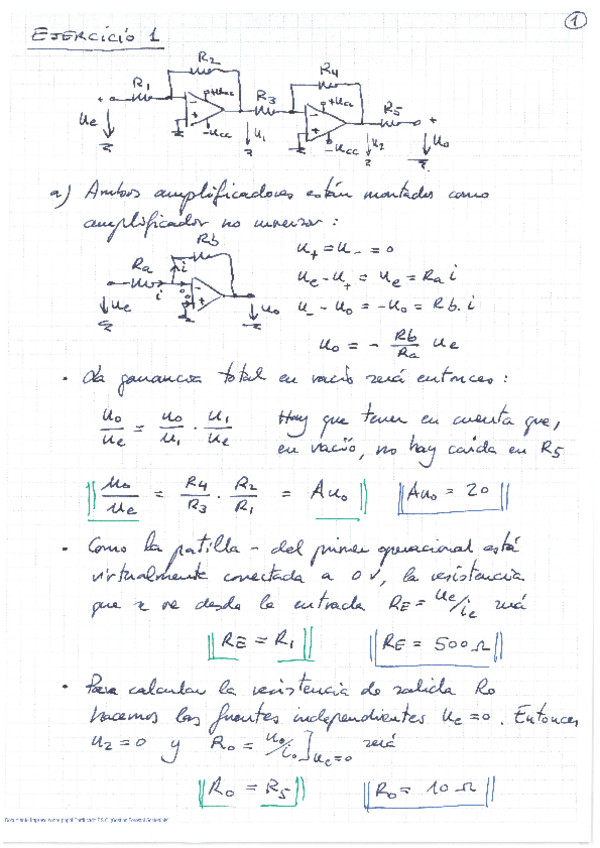 1
EJERCICIO 1
R1 R2 R3 R4 R5
+Ucc +Ucc
-Ucc -Ucc
Ue U1 U2 Uo
a) Ambos amplificadores están montados como
amplificador no inversor :
Ra Rb i i Ue Uo
U+ = U- = 0
Ue - U+ = Ue = Ra i
U- - Uo = -Uo = Rb. i
Uo = - Rb/Ra Ue
· La ganancia total en vacío será entonces :
Uo/Ue = Uo/U1 · U1/Ue
Hay que tener en cuenta que,
en vacío, no hay caída en R5
Uo/Ue = R4/R3 · R2/R1 = Auo
Auo = 20
· Como la patilla - del primer operacional está
virtualmente conectada a 0 V, la resistencia
que se ve desde la entrada RE = Ue/ie será
RE = R1
RE = 500 Ω
· Para calcular la resistencia de salida Ro
hacemos las fuentes independientes Ue = 0. Entonces
U2 = 0 y Ro = Uo/io]Ue=0 será
Ro = R5
Ro = 10 Ω